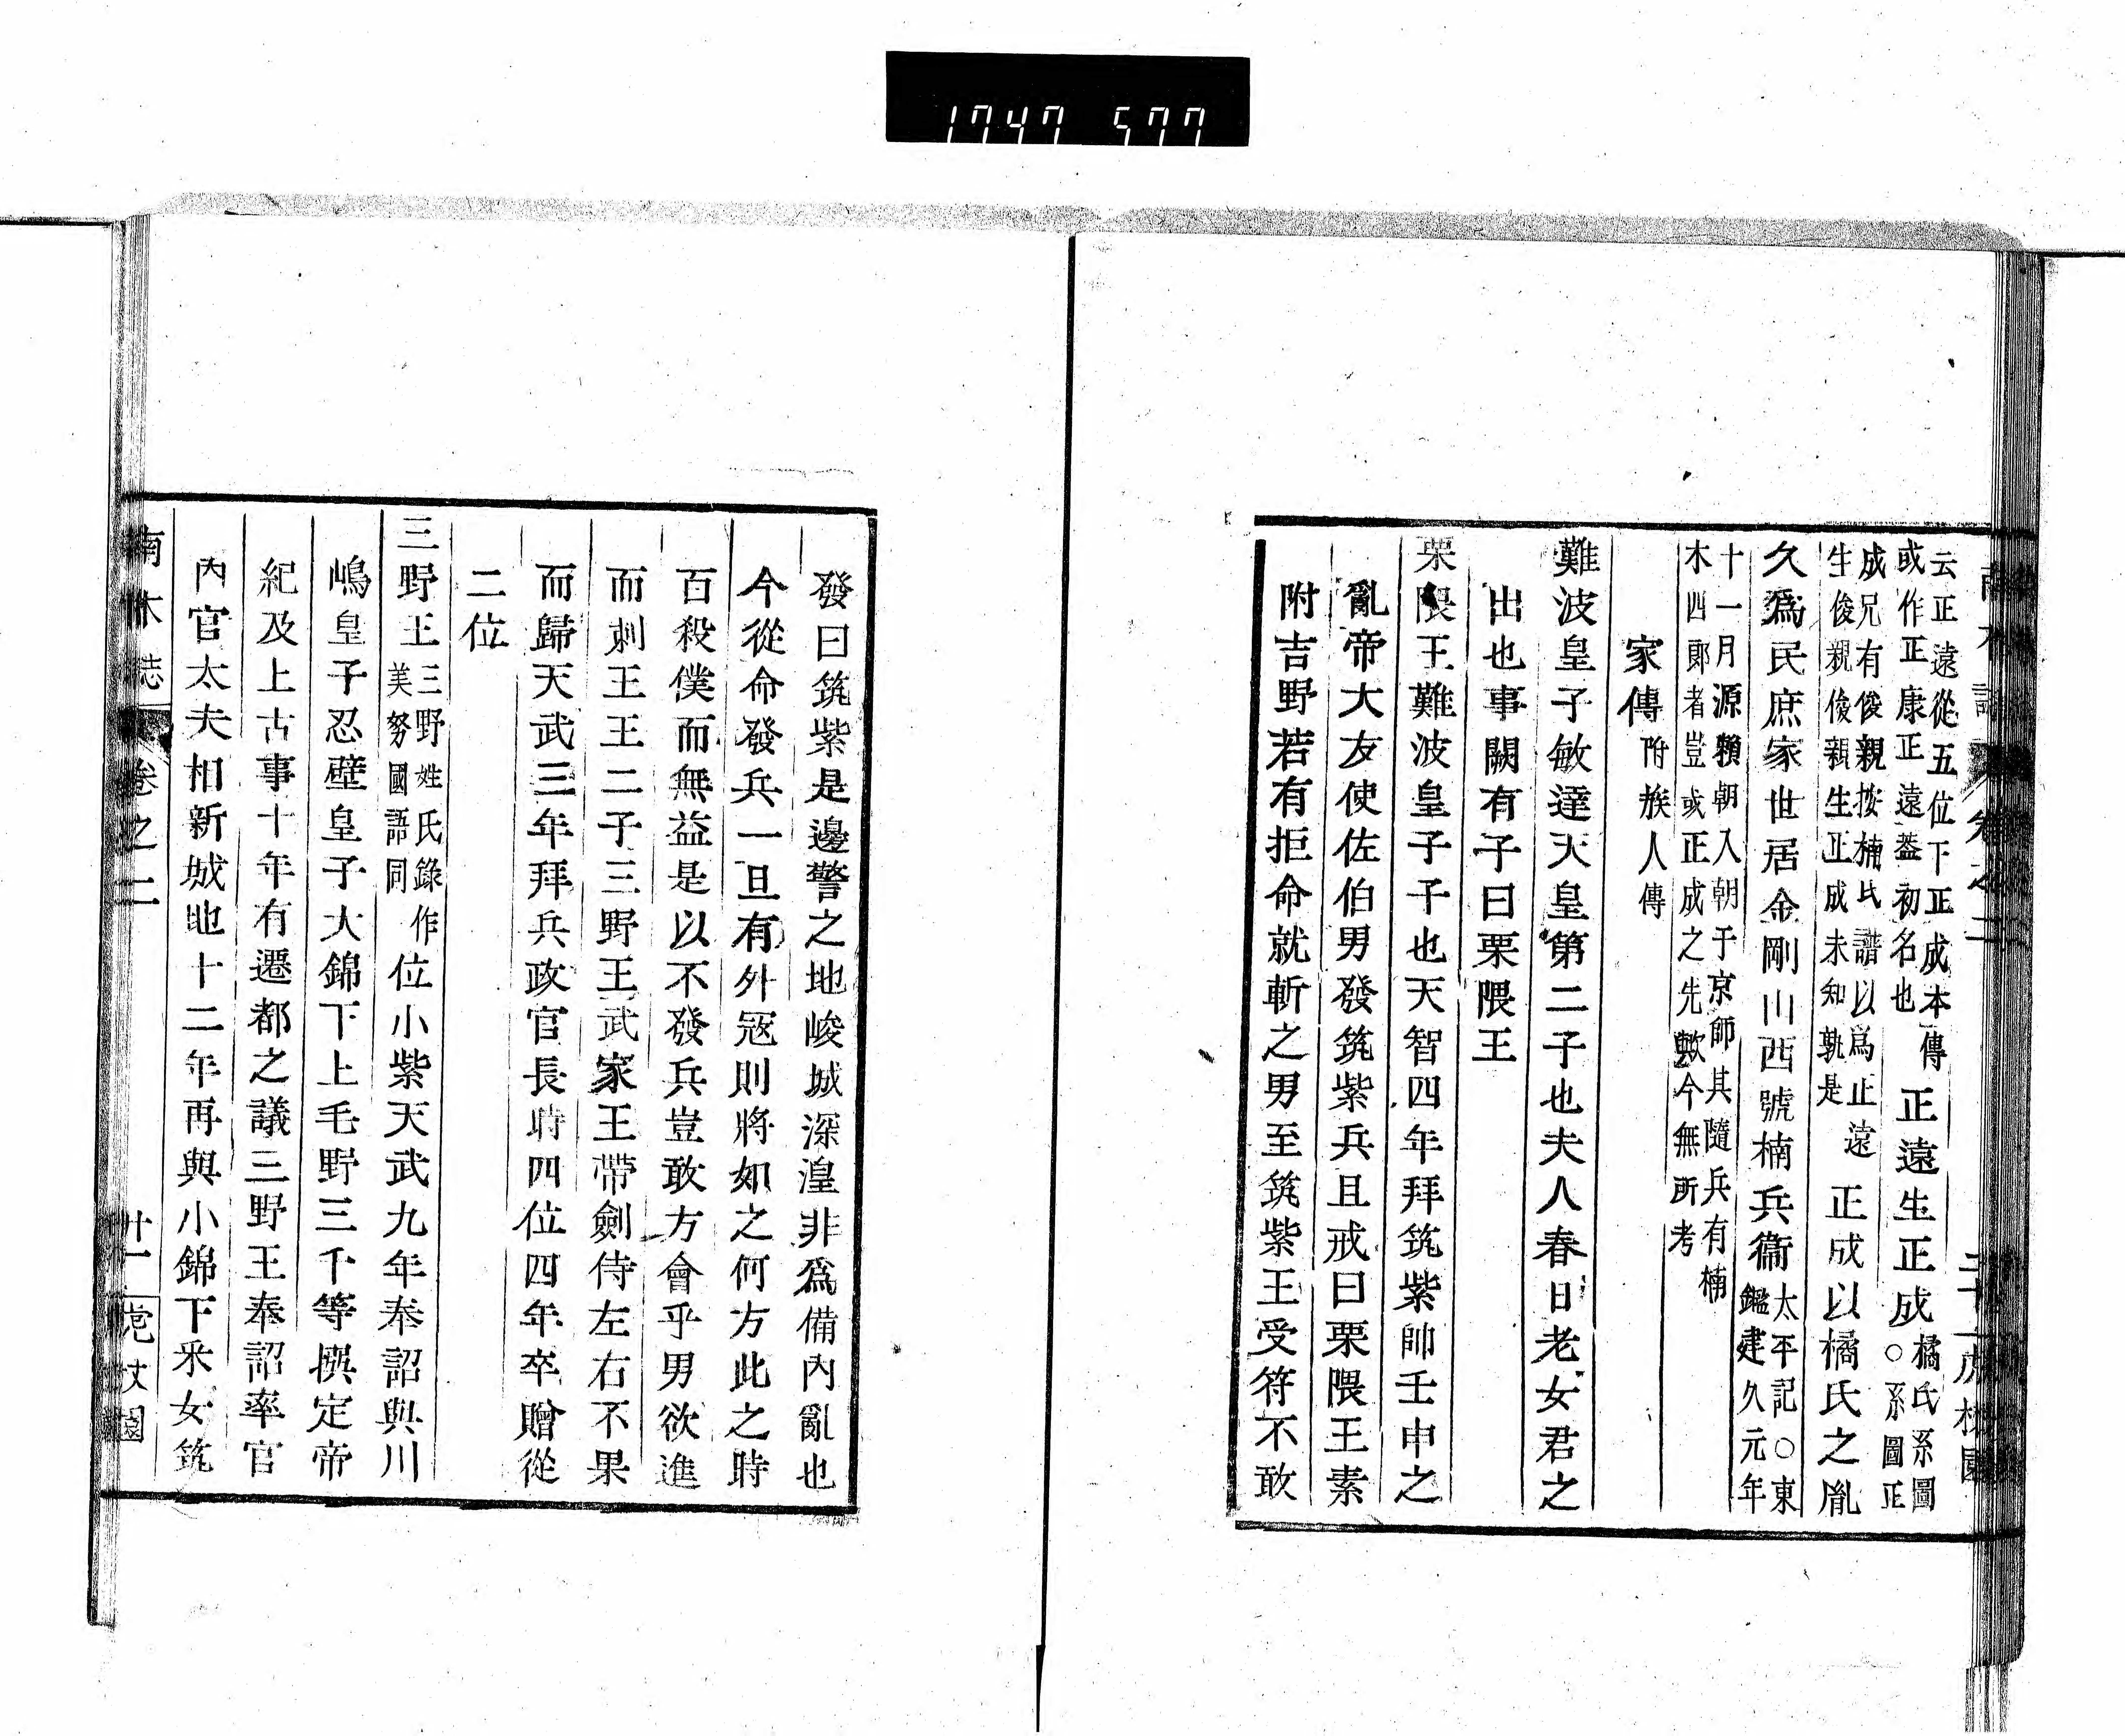 1747 577
云正遠從五位下正成本傳
或作正康正遠蓋初名也
正遠生正成
橘氏系圖
○系圖正
成兄有俊親按楠氏譜以爲正遠
生俊親俊親生正成未知孰是
正成以橘氏之胤
久爲民庶家世居金剛山西號楠兵衞
太平記○東
鑑建久元年
十一月源賴朝入朝于京師其隨兵有楠
木四郞者豈或正成之先歟今無所考
家傳附族人傳
難波皇子敏達天皇第二子也夫人春日老女君之
出也事闕有子曰栗隈王
栗隈王難波皇子子也天智四年拜筑紫帥壬申之
亂帝大友使佐伯男發筑紫兵且戒曰栗隈王素
附吉野若有拒命就斬之男至筑紫王受符不敢
發曰筑紫是邊警之地峻城深湟非爲備內亂也
今從命發兵一旦有外冦則將如之何方此之時
百殺僕而無益是以不發兵豈敢方會乎男欲進
而刺王王二子三野王武家王帶劍侍左右不果
而歸天武三年拜兵政官長時四位四年卒贈從
二位
三野王
三野姓氏錄作
美努國語同
位小紫天武九年奉詔與川
嶋皇子忍壁皇子大錦下上毛野三千等撰定帝
紀及上古事十年有遷都之議三野王奉詔率官
內官太夫相新城地十二年再與小錦下釆女筑
南木誌
卷之二
廿一